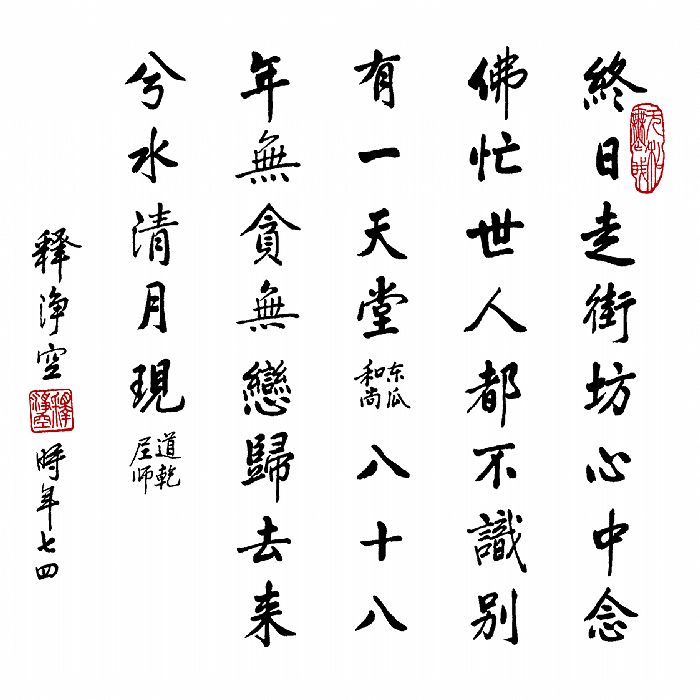 終日走街坊心中念
佛忙世人都不識别
有一天堂东瓜和尚八十八
年無貪無戀歸去来
兮水清月現道乾尼师
释淨空
釋淨空
時年七四